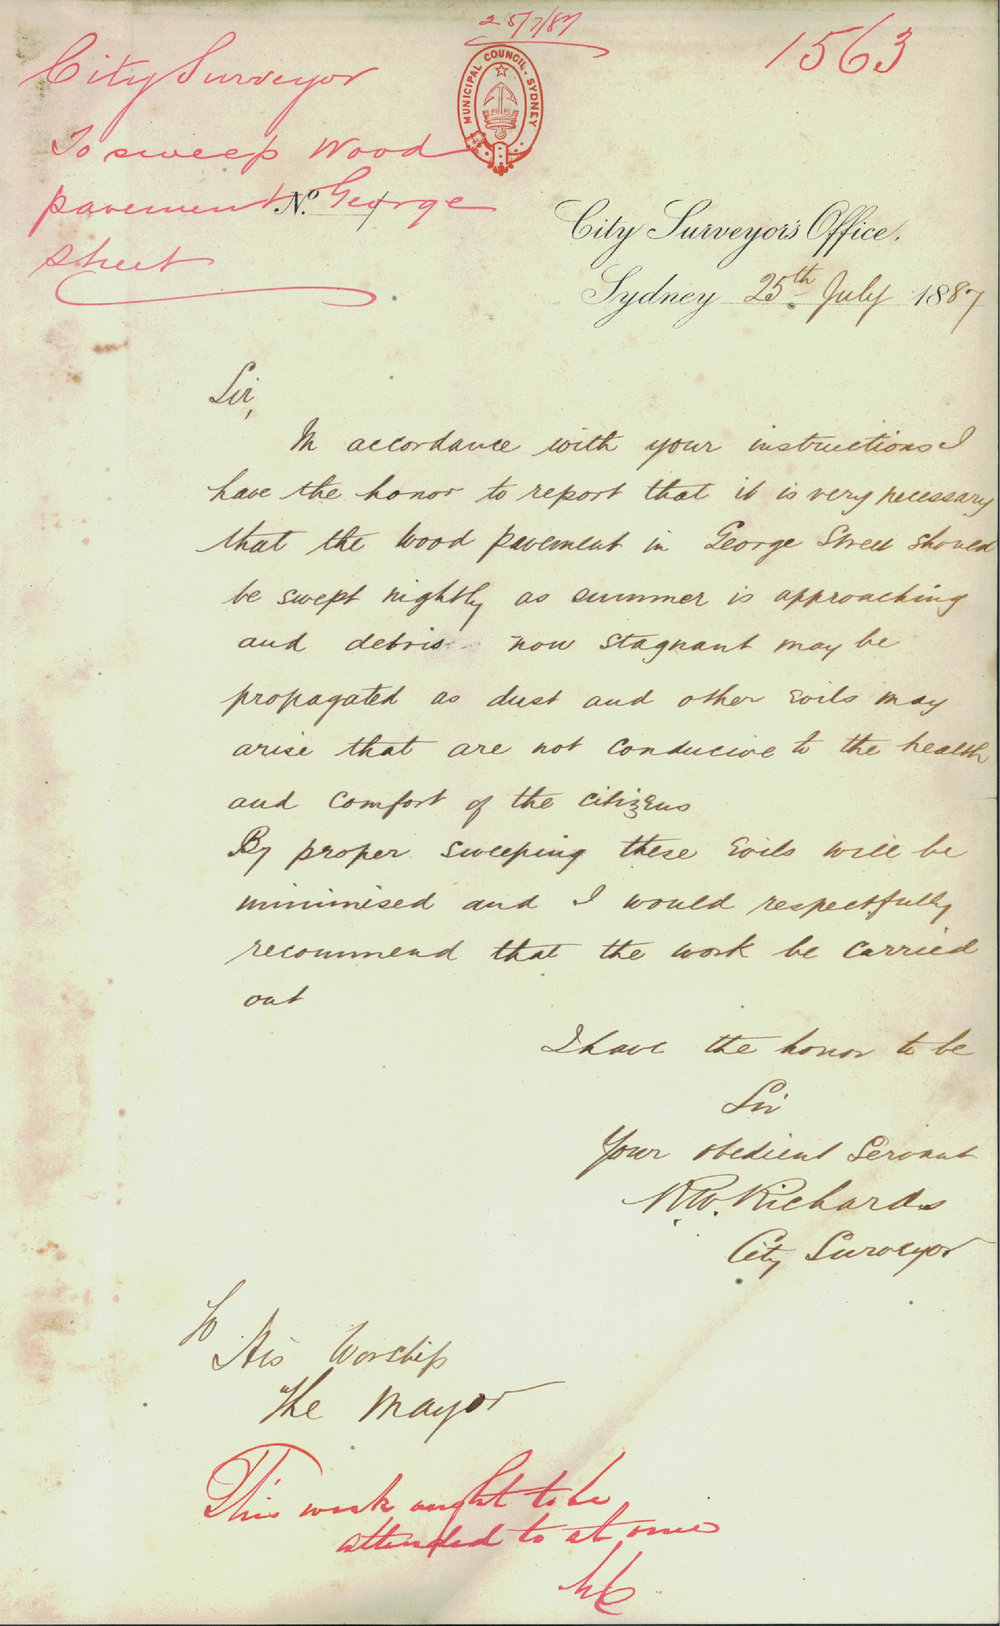 25/7/87
1563
City Surveyor
To sweep Wood
pavement George
street
MUNICIPAL COUNCIL. SYDNEY
No.
City Surveyor's Office.
Sydney 25th July 1887
Sir,
In accordance with your instructions I
have the honor to report that it is very necessary
that the wood pavement in George Street should
be swept nightly as summer is approaching
and debris now stagnant may be
propagated as dust and other evils may
arise that are not conducive to the health
and comfort of the citizens
By proper sweeping these evils will be
minimised and I would respectfully
recommend that the work be carried
out
I have the honor to be
Sir
Your obedient Servant
R.W. Richards
City Surveyor
To
His Worship
The Mayor
This work ought to be
attended to at once